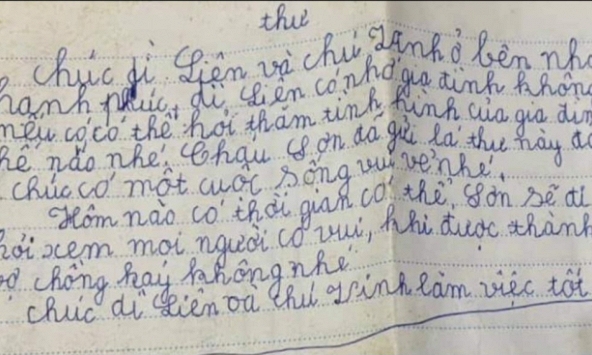 thư
Chúc dì Liên và chú Lãnh ở bên nhà
hạnh phúc, dì Liên có nhớ gia đình không
nếu cọ có thể hỏi thăm tình hình của gia đìn
thế nào nhé. Cháu Sơn đã gửi lá thư này
chúc có một cuộc sống vui vẻ nhé.
Hôm nào có thời gian có thể, Sơn sẽ đi
hỏi xem mọi người có vui, khi được thành
vợ chồng hay không nhé
chúc dì Liên và chú làm việc tốt